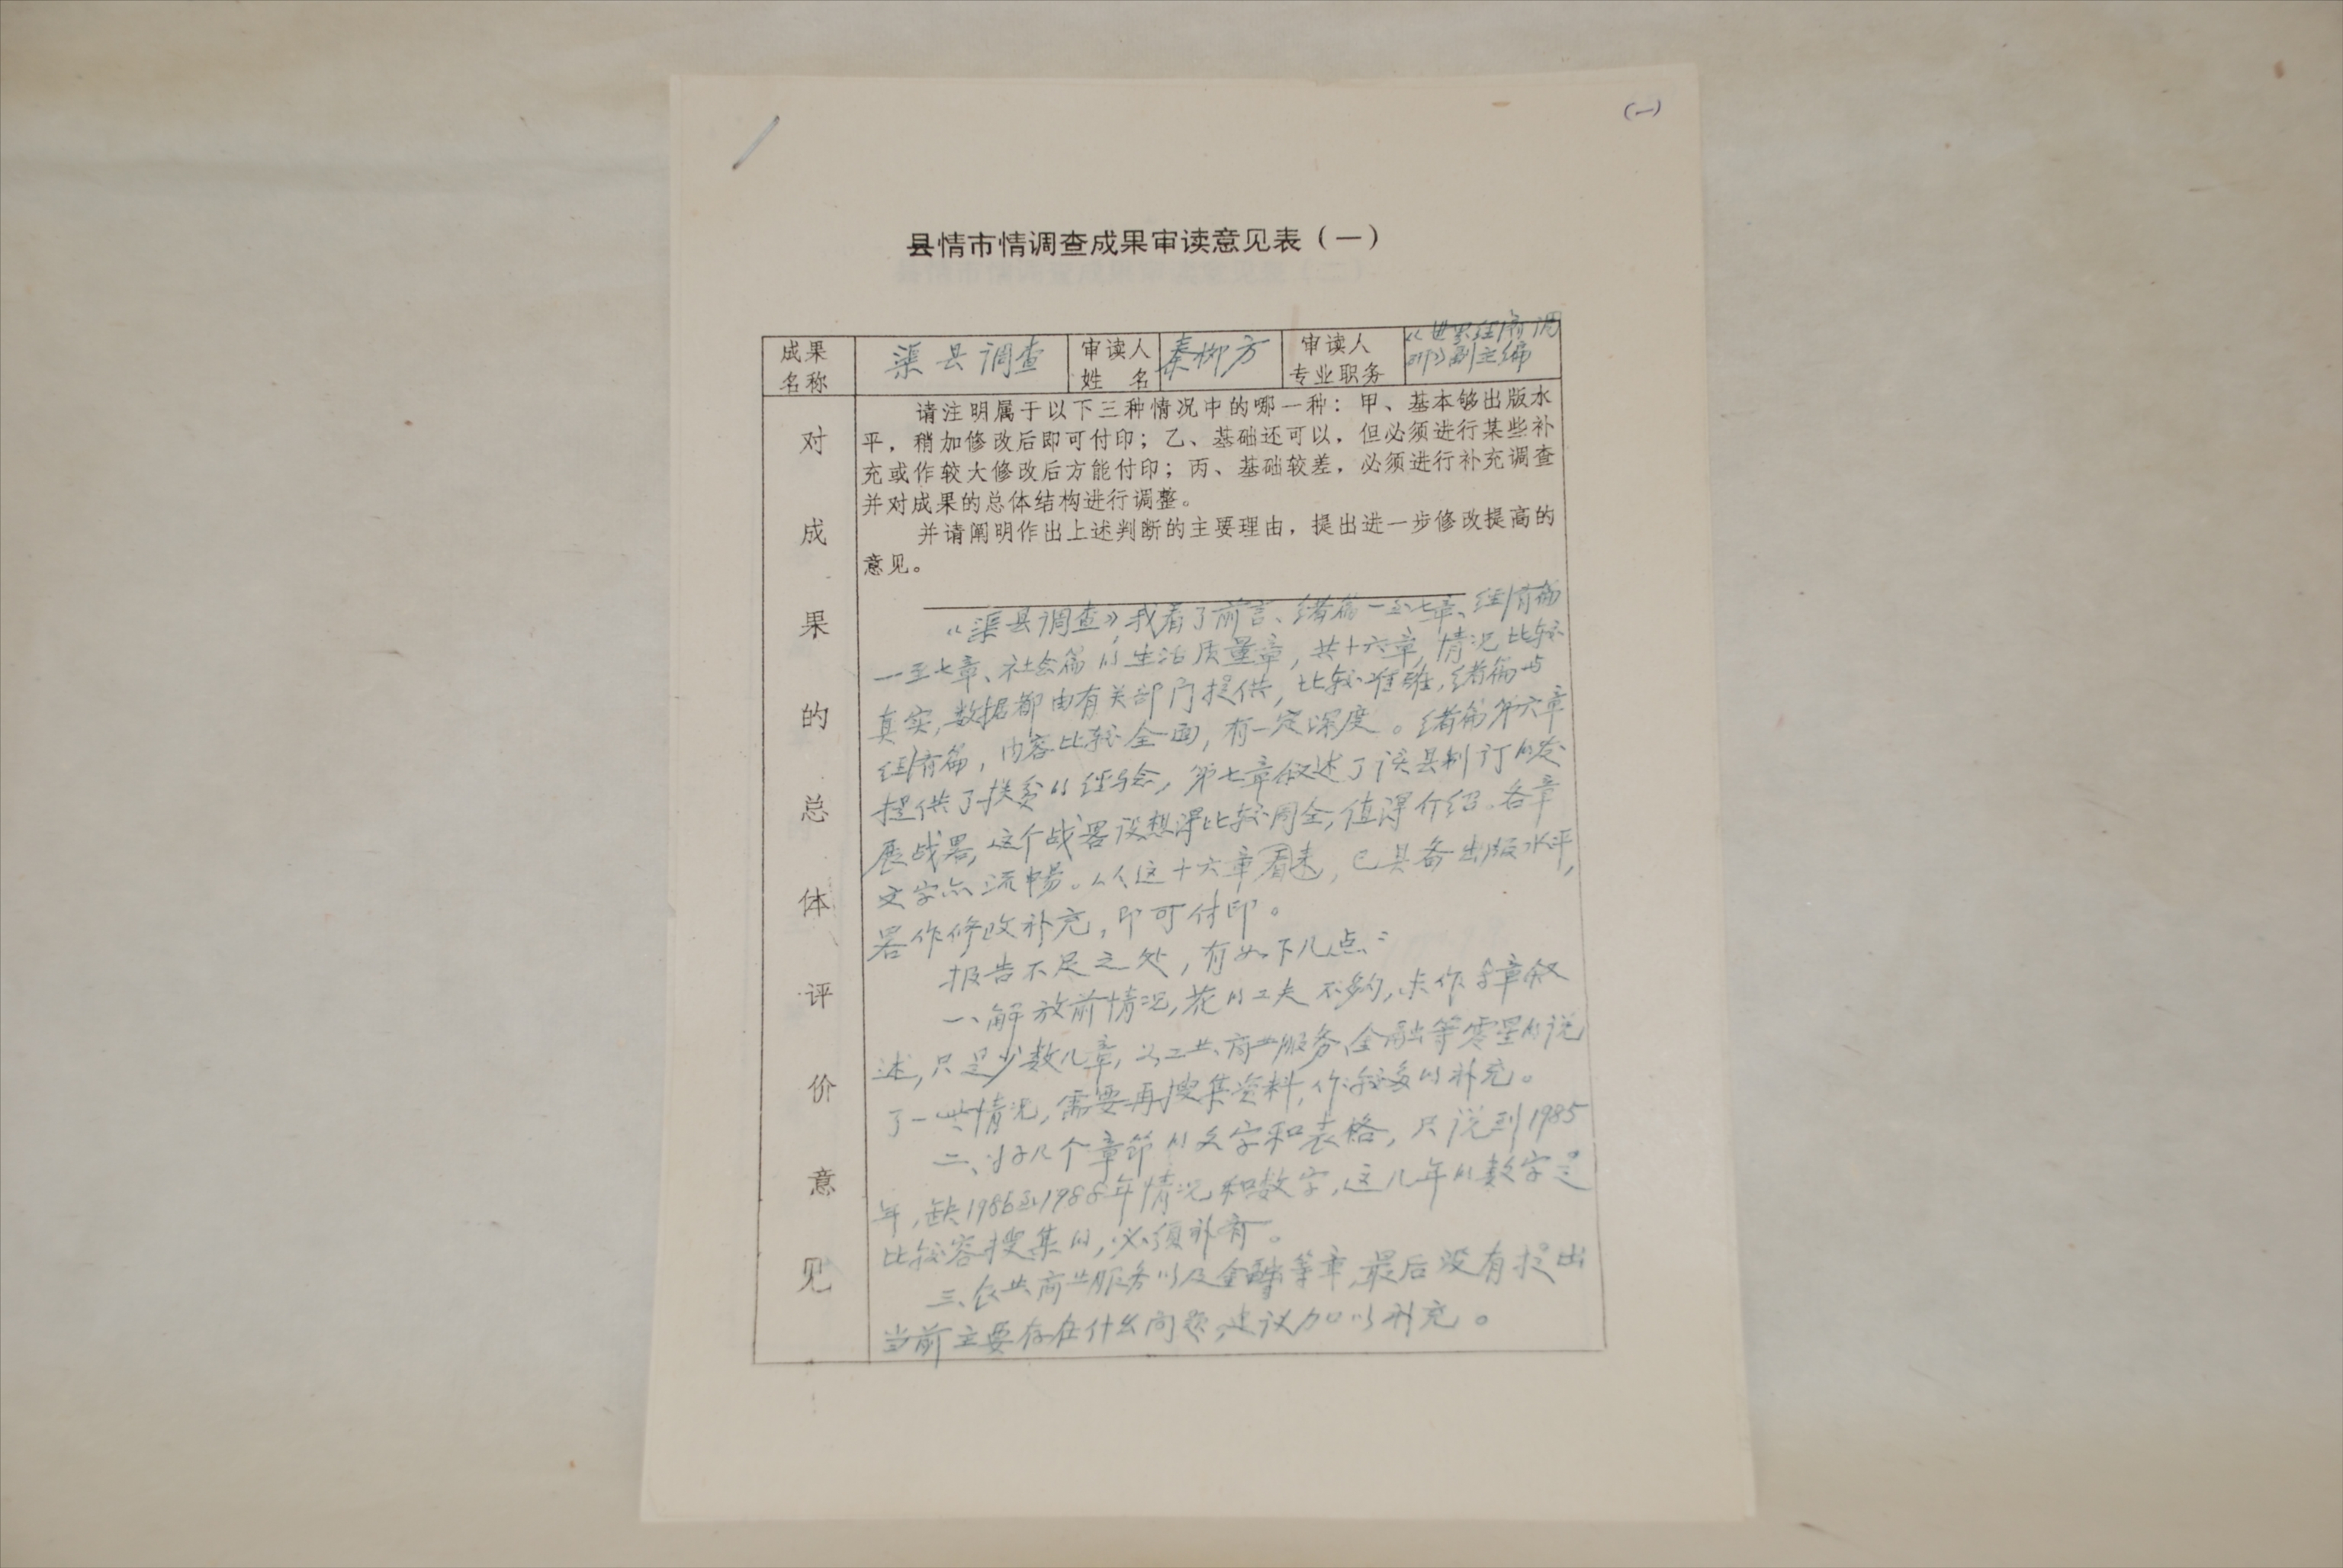 (一)
县情市情调查成果审读意见表(一)
成果名称
渠县调查
审读人姓 名
秦柳方
审读人专业职务
《世界经济调研》副主编
对成果的总体评价意见
请注明属于以下三种情况中的哪一种：甲、基本够出版水
平，稍加修改后即可付印；乙、基础还可以，但必须进行某些补
充或作较大修改后方能付印；丙、基础较差，必须进行补充调查
并对成果的总体结构进行调整。
并请阐明作出上述判断的主要理由，提出进一步修改提高的
意见。
《渠县调查》，我看了前言、绪篇一至七章、经济篇
一至七章、社会篇的生活质量章，共十六章，情况比较
真实，数据都由有关部门提供，比较准确，绪篇与
经济篇，内容比较全面，有一定深度。绪篇第六章
提供了扶贫的经验，第七章叙述了该县制订的发
展战略，这个战略设想得比较周全，值得介绍。各章
文字亦流畅。从这十六章看来，已具备出版水平，
略作修改补充，即可付印。
报告不足之处，有如下几点：
一、解放前情况，花的工夫不够，未作专章叙
述，只是少数几章，如工业、商业服务、金融等零星的说
了一些情况，需要再搜集资料，作较多的补充。
二、好几个章节的文字和表格，只说到1985
年，缺1986到1988年情况和数字，这几年的数字是
比较容搜集的，必须补齐。
三、农业、商业服务以及金融等章，最后没有提出
当前主要存在什么问题，建议加以补充。